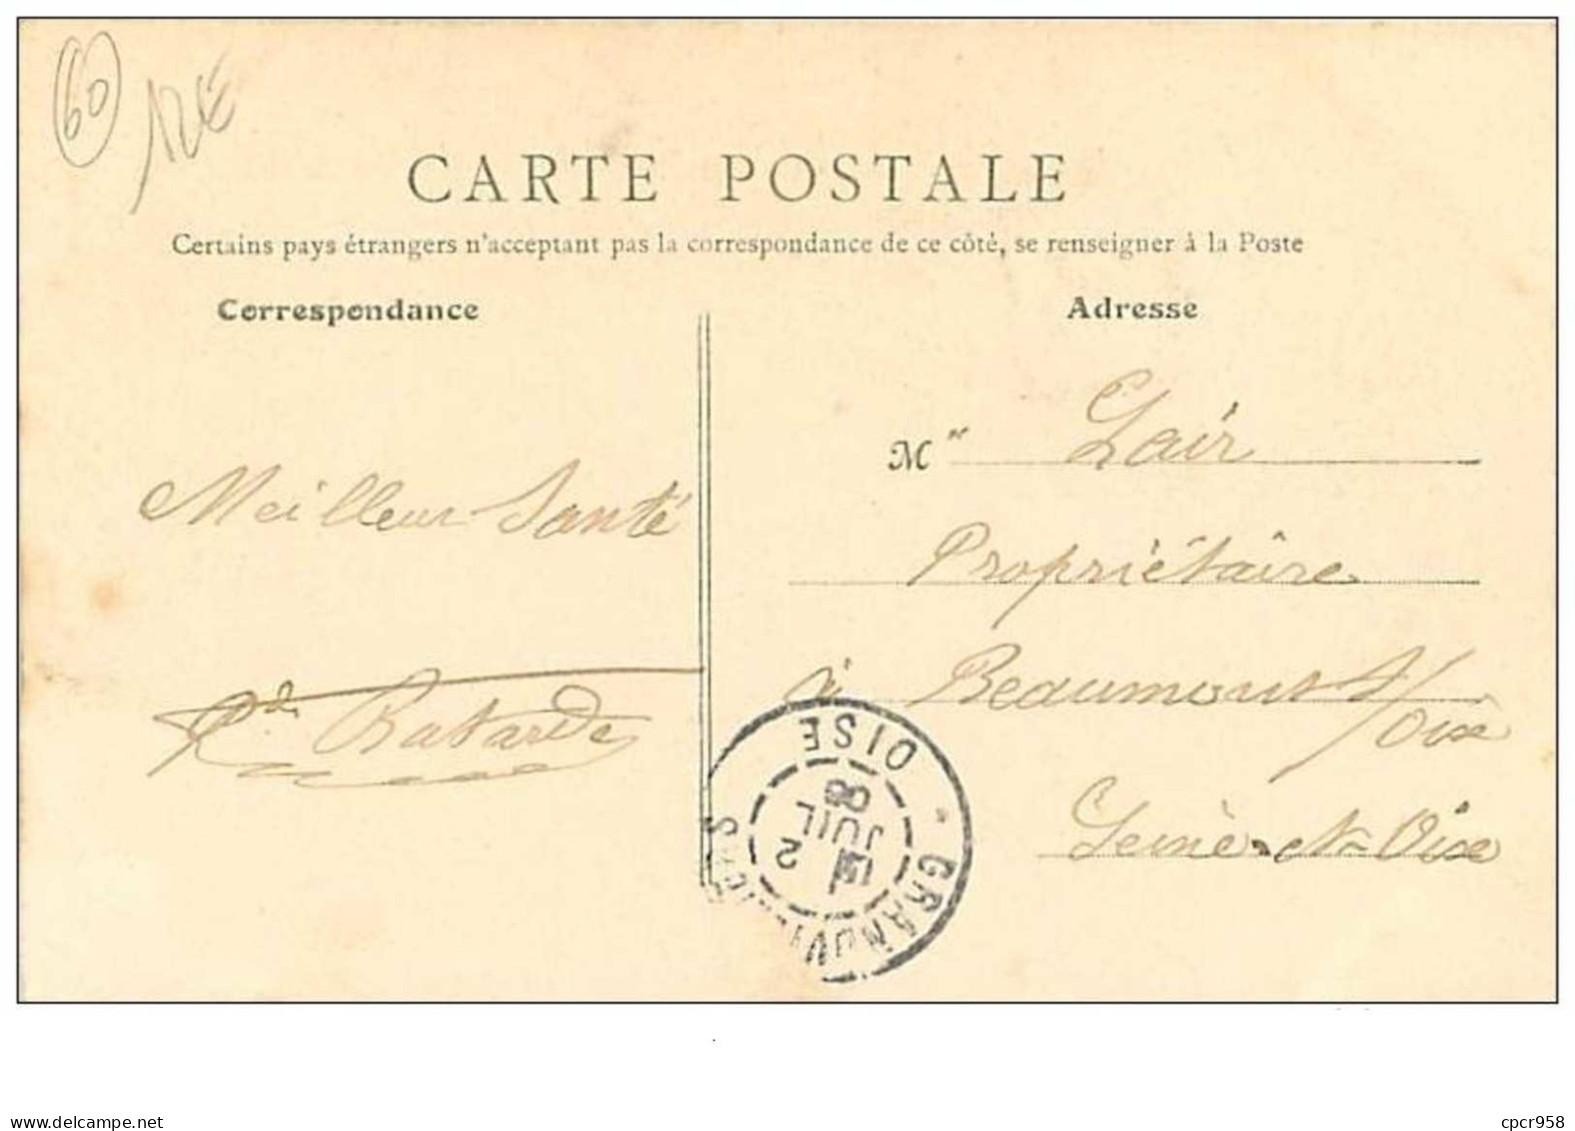 60
12E
CARTE POSTALE
Certains pays étrangers n'acceptant pas la correspondance de ce côté, se renseigner à la Poste
Correspondance
Adresse
Mr Lair
Meilleur Santé
Propriétaire
à Beaumont s/Oise
Seine-et-Oise
OISE
GRANDVILLIERS
2
JUIL
08
www.delcampe.net
cpcr958